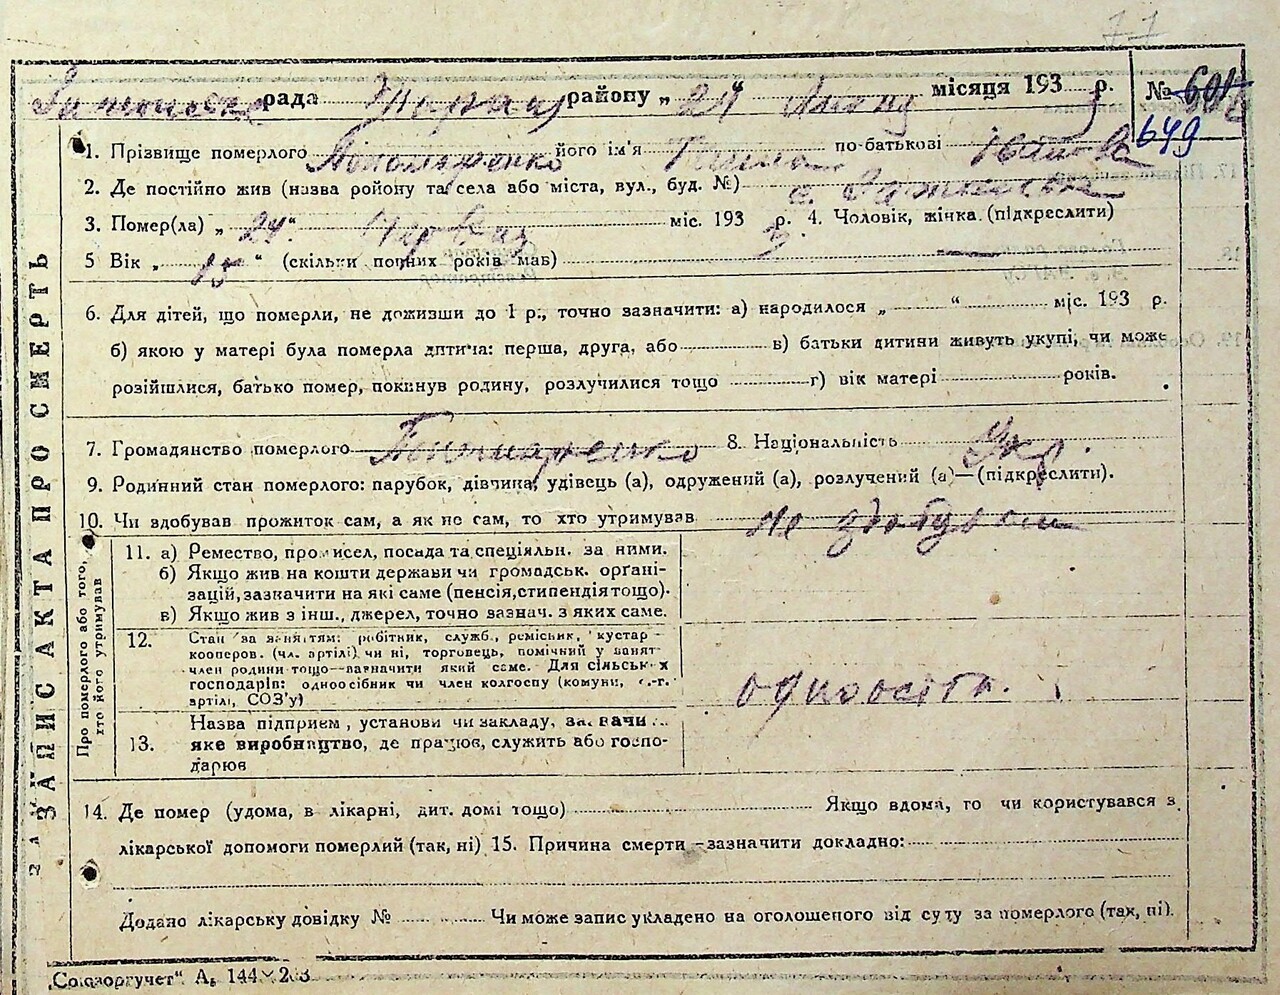 77
рада района „ 24 " місяця 193 3 р. № 601
649
1. Прізвище померлого Пономаренко його ім'я по-батькові
2. Де постійно жив (назва ройону та села або міста, вул., буд. №) с.
3. Помер(ла) „ 24 " Червня міс. 193 3 р. 4. Чоловік, жінка. (підкреслити)
5 Вік „ 15 " (скільки повних років мав)
6. Для дітей, що померли, не доживши до 1 р., точно зазначити: а) народилося „ " міс. 193 р.
б) якою у матері була померла дитина: перша, друга, або в) батьки дитини живуть укупі, чи може
розійшлися, батько помер, покинув родину, розлучилися тощо г) вік матері років.
7. Громадянство померлого Пономаренко 8. Національність Укр.
9. Родинний стан померлого: парубок, дівчина, удівець (а), одружений (а), розлучений (а)—(підкреслити).
10. Чи здобував прожиток сам, а як не сам, то хто утримував не здобував
ЗАПИС АКТА ПРО СМЕРТЬ
Про померлого або того, хто його утримував
11. а) Ремество, промисел, посада та спеціяльн. за ними.
б) Якщо жив на кошти держави чи громадськ. орґані-
зацій, зазначити на які саме (пенсія, стипендія тощо).
в) Якщо жив з інш., джерел, точно зазнач. з яких саме.
12. Стан за заняттям: робітник, служб., ремісник, кустар -
кооперов. (чл. артілі) чи ні, торговець, помічний у занят-
член родини тощо—зазначити який саме. Для сільських
господарів: одноосібник чи член колгоспу (комуни, с.-г.
артілі, СОЗ'у) одноосібн.
Назва підприєм., установи чи закладу, зазначи
13. яке виробництво, де працює, служить або госпо-
дарює
14. Де помер (удома, в лікарні, дит. домі тощо) Якщо вдома, то чи користувався з
лікарської допомоги померлий (так, ні) 15. Причина смерти - зазначити докладно:
Додано лікарську довідку № Чи може запис укладено на оголошеного від суду за померлого (так, ні).
„Союзоргучет“ А₅ 144×203